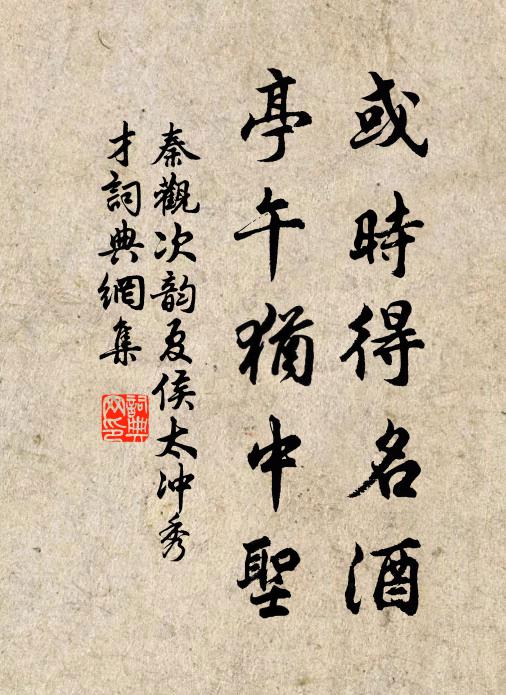 或時得名酒
亭午猶中聖
秦觀次韵夏侯太冲秀
才詞典網集
詞典